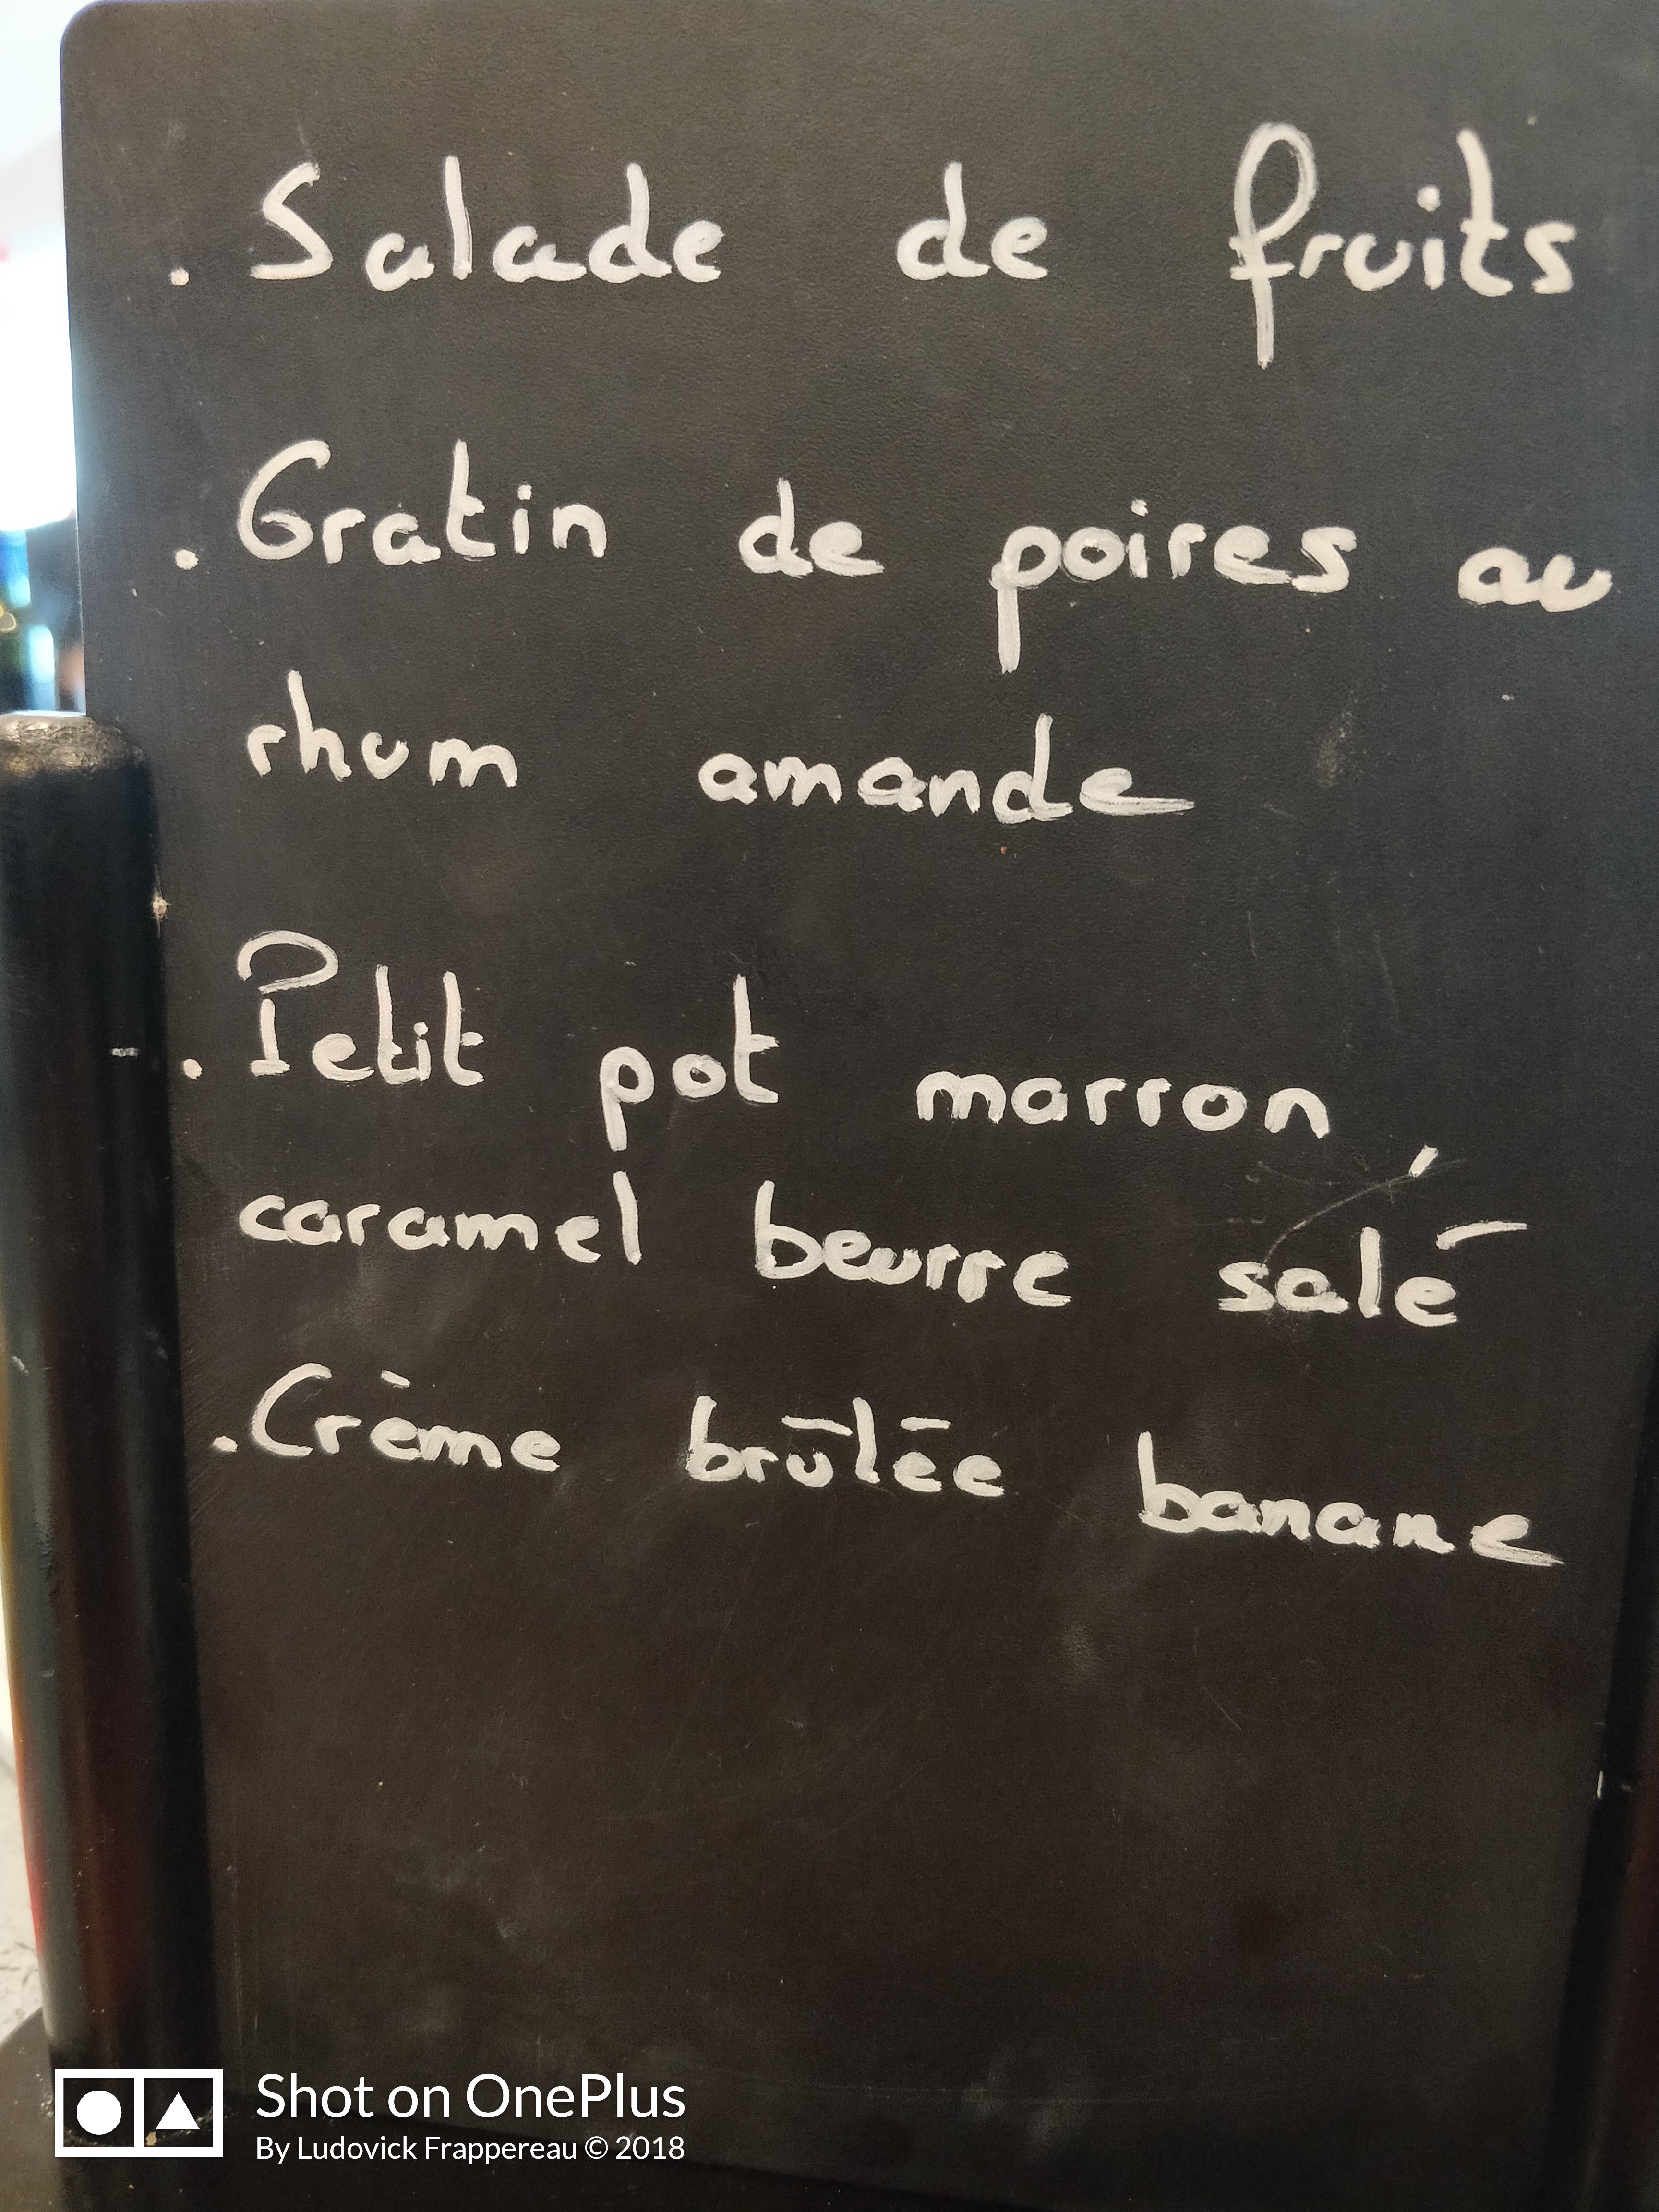 . Salade de fruits
. Gratin de poires au
rhum amande
. Petit pot marron,
caramel beurre salé
. Crème brûlée banane
Shot on OnePlus
By Ludovick Frappereau © 2018